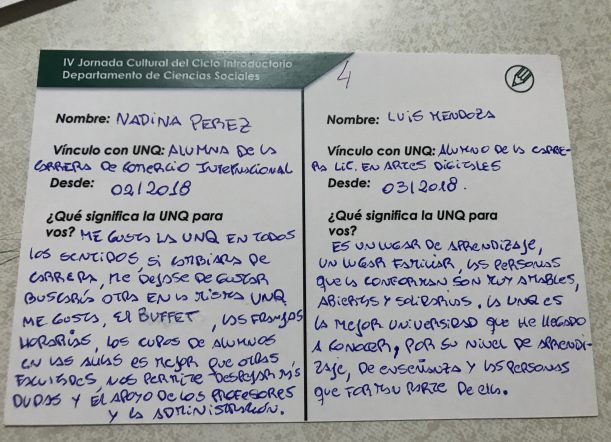 IV Jornada Cultural del Ciclo Introductorio
Departamento de Ciencias Sociales
4
Nombre: NADINA PEREZ
Vínculo con UNQ: ALUMNA DE LA
CARRERA DE COMERCIO INTERNACIONAL
Desde: 02/2018
¿Qué significa la UNQ para
vos? ME GUSTA LA UNQ EN TODOS
LOS SENTIDOS, SI CAMBIARA DE
CARRERA, ME DEJASE DE GUSTAR
BUSCARÍA OTRA EN LA MISMA UNQ.
ME GUSTA, EL BUFFET, LAS FRANJAS
HORARIAS, LOS CUPOS DE ALUMNOS
EN LAS AULAS ES MEJOR QUE OTRAS
FACULTADES, NOS PERMITE DESPEJAR MÁS
DUDAS Y EL APOYO DE LOS PROFESORES
Y LA ADMINISTRACIÓN.
Nombre: LUIS MENDOZA
Vínculo con UNQ: ALUMNO DE LA CARRE-
RA LIC. EN ARTES DIGITALES
Desde: 03/2018.
¿Qué significa la UNQ para
vos?
ES UN LUGAR DE APRENDIZAJE,
UN LUGAR FAMILIAR, LAS PERSONAS
QUE LA CONFORMAN SON MUY AMABLES,
ABIERTAS Y SOLIDARIAS. LA UNQ ES
LA MEJOR UNIVERSIDAD QUE HE LLEGADO
A CONOCER, POR SU NIVEL DE APRENDI-
ZAJE, DE ENSEÑANZA Y LAS PERSONAS
QUE FORMAN PARTE DE ELLA.